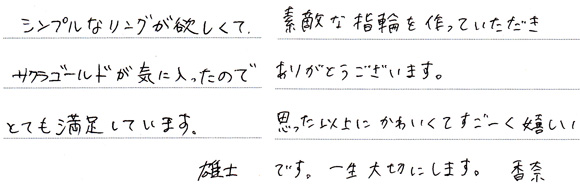 シンプルなリングが欲しくて、
サクラゴールドが気に入ったので
とても満足しています。
雄士
素敵な指輪を作っていただき
ありがとうございます。
思った以上にかわいくてすごーく嬉しい
です。一生大切にします。 香奈